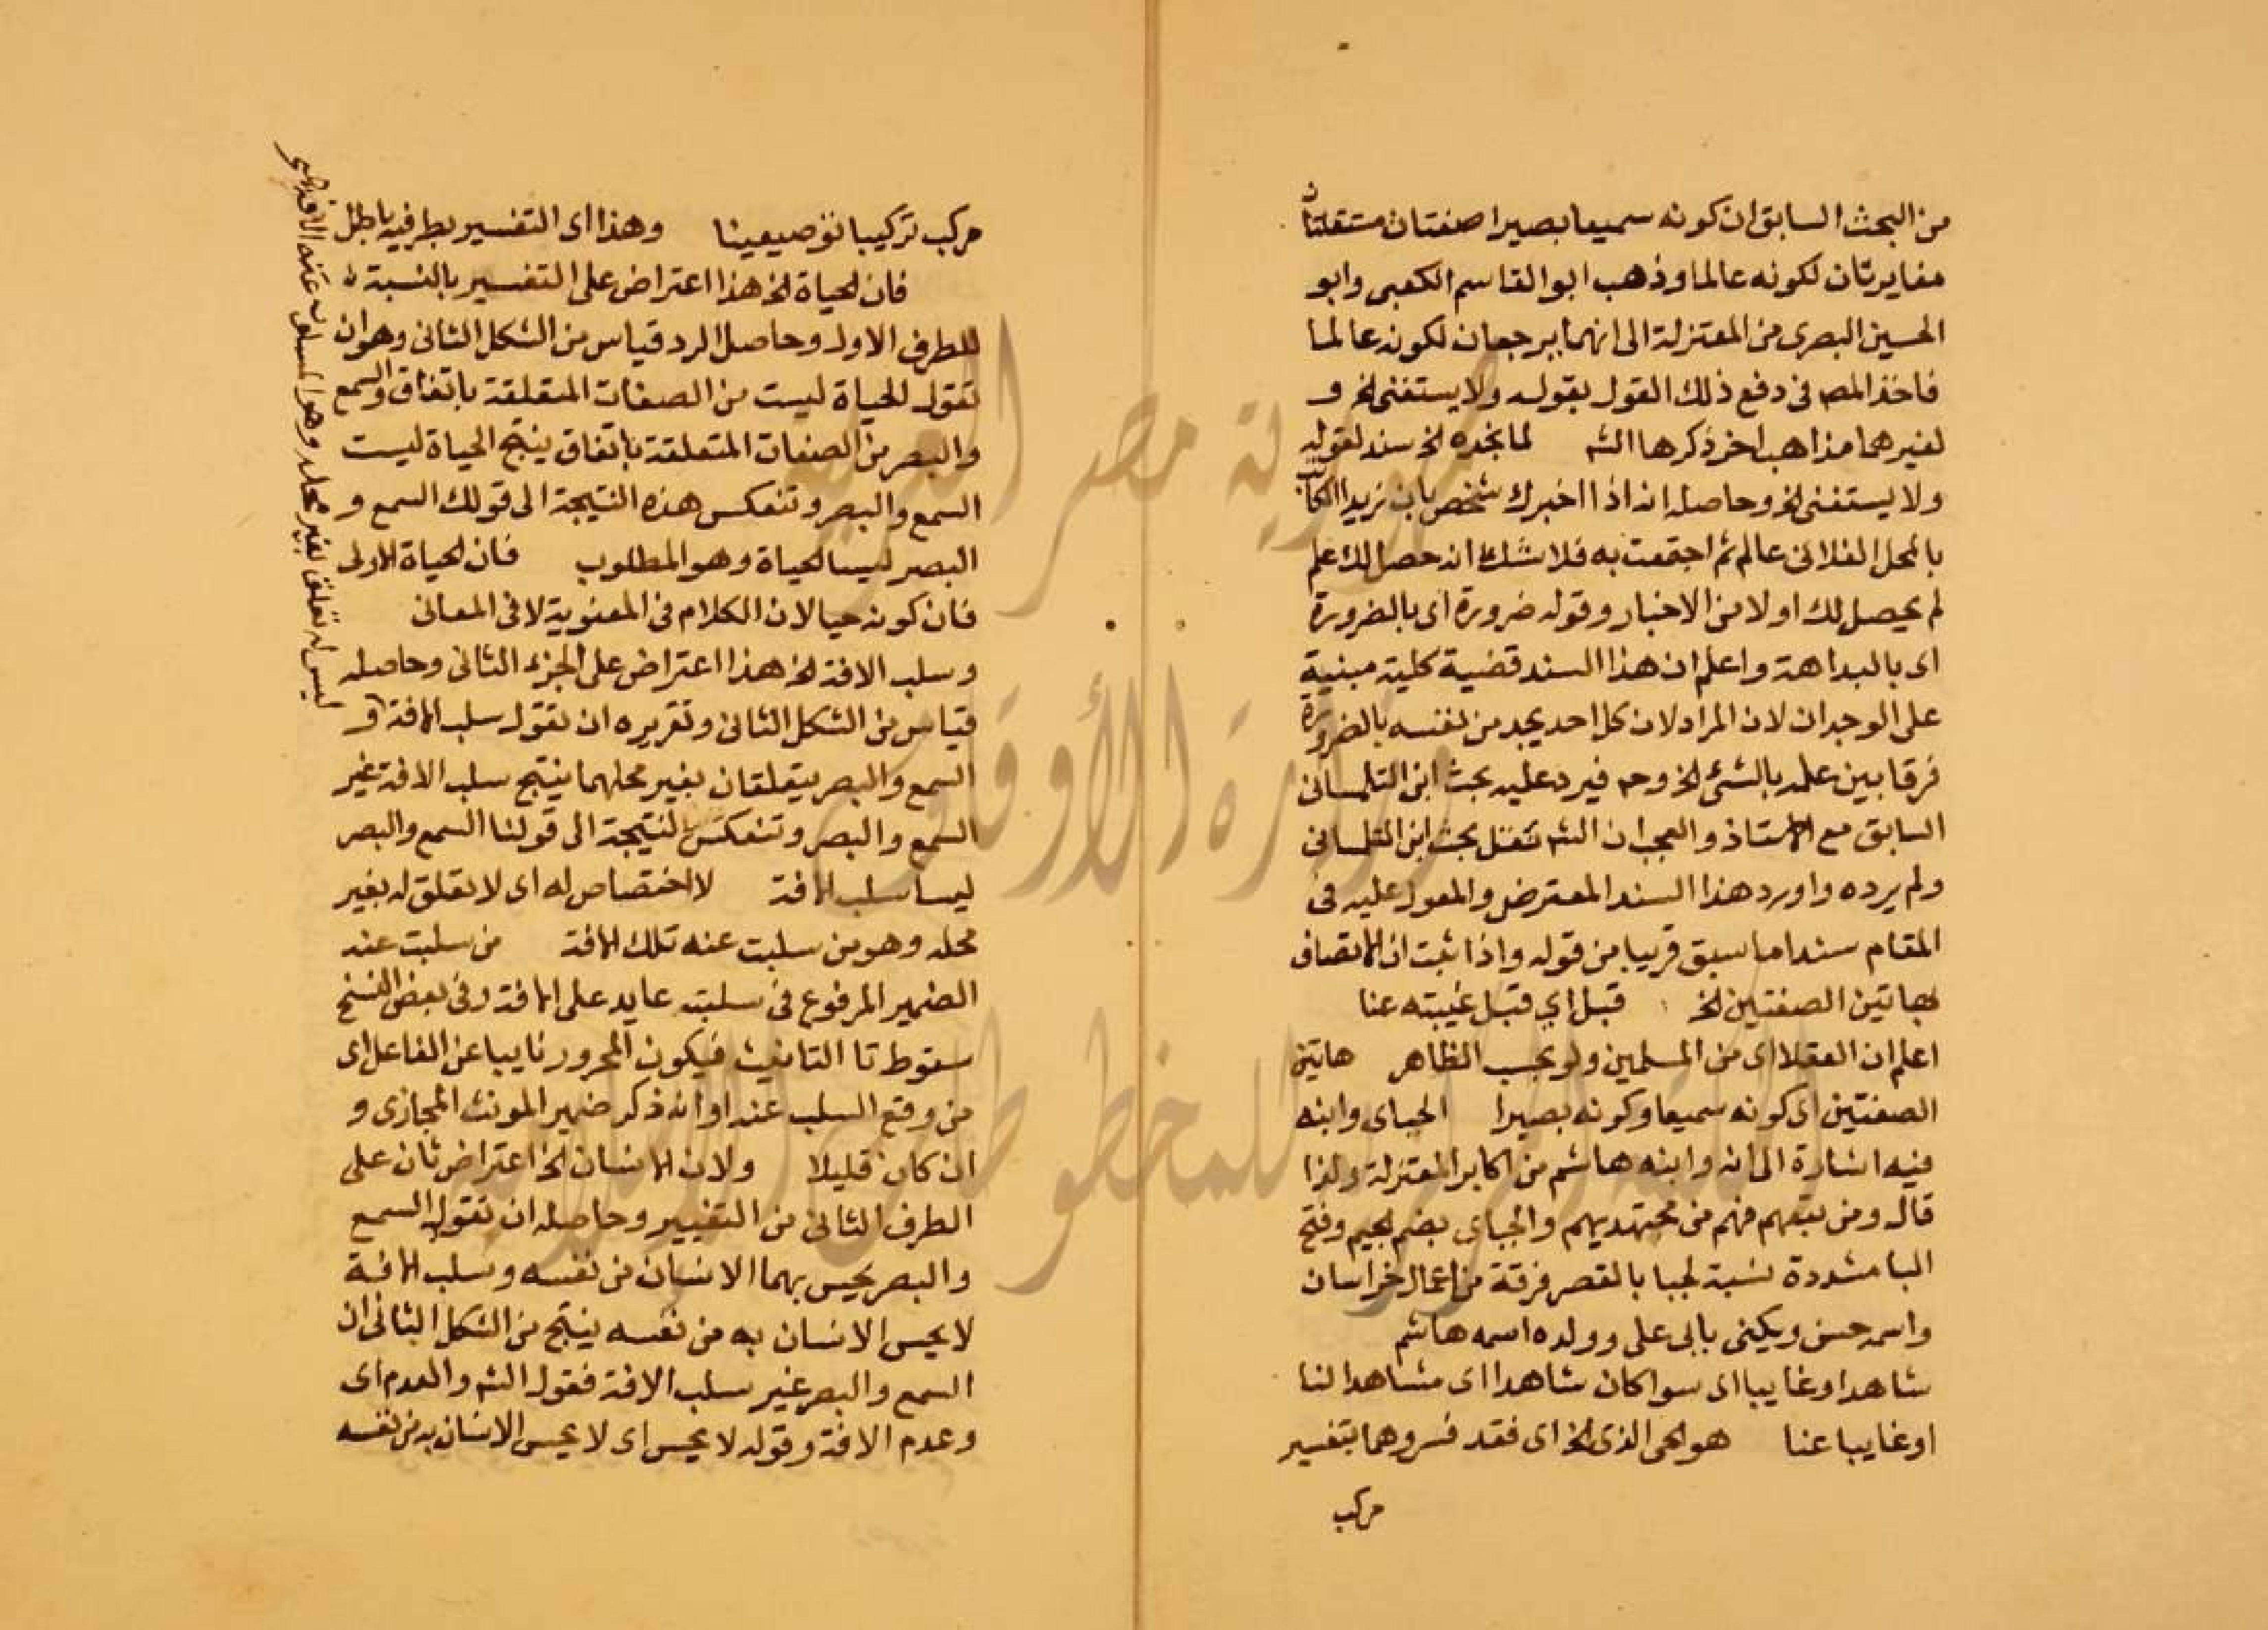 من البحث السابق ان كونه سميعا بصيرا صفتان مستقلتان
مغايرتان لكونه عالما وذهب ابو القاسم الكعبى وابو
الحسين البصرى من المعتزلة الى انهما يرجعان لكونه عالما
فاخذ المصـ فى دفع ذلك القول بقوله ولا يستغنى الخ و
لغيرهما مذاهب اخر ذكرها الشـ لما نجده الخ سند لقوله
ولا يستغنى الخ وحاصله انه اذا اخبرك شخص بان زيدا الكائن
بالمحل الفلانى عالم ثم اجتمعت به فلا شك انه حصل لك علم
لم يحصل لك اولا من الاخبار وقوله ضرورة اى بالضرورة
اى بالبداهة واعلم ان هذا السند قضية كلية مبنية
على الوجدان لان المراد لان كل احد يجد من نفسه بالضرورة
فرقا بين علمه بالشئ الخ وحـ فيرد عليه بحث ابن التلمسانى
السابق مع الاستاذ والعجب ان الشـ نقل بحث ابن التلمسانى
ولم يرده واورد هذا السند المعترض والمعول عليه فى
المقام سندا ما سبق قريبا من قوله واذا ثبت ان الاتصاف
بهاتين الصفتين الخ قبل اي قبل غيبته عنا
اعلم ان العقلا اى من المسلمين ولو بحسب الظاهر هاتين
الصفتين اى كونه سميعا وكونه بصيرا الجباى وابنه
فيه اشارة الى انه وابنه هاشم من اكابر المعتزلة ولذا
قال ومن تبعهم فهم من مجتهديهم والجباى بضم الجيم وفتح
البا مشددة نسبة لجبا بالقصر فرقة من اعمال خراسان
واسمه حسن ويكنى بابى على وولده اسمه هاشم
شاهدا او غايبا اى سوا كان شاهدا اى مشاهدا لنا
او غايبا عنا هو الحى الذى الخ اى فقد فسروهما بتفسير
مركب
مركب تركيبا توصيفيا وهذا اى التفسير بطرفيه باطل
فان الحياة الخ هذا اعتراض على التفسير بالنسبة
للطرف الاول وحاصل الرد قياس من الشكل الثانى وهو ان
تقول الحياة ليست من الصفات المتعلقة باتفاق والسمع
والبصر من الصفات المتعلقة باتفاق ينتج الحياة ليست
السمع والبصر وتنعكس هذه النتيجة الى قولك السمع و
البصر ليسا الحياة وهو المطلوب فان الحياة الاولى
فان كونه حيا لان الكلام فى المعنوية لا فى المعانى
وسلب الافة الخ هذا اعتراض على الجزء الثانى وحاصله
قياس من الشكل الثانى وتقريره ان تقول سلب الافة و
السمع والبصر يتعلقان بغير محلهما ينتج سلب الافة غير
السمع والبصر وتنعكس النتيجة الى قولنا السمع والبصر
ليسا سلب الافة لا اختصاص له اى لا تعلق له بغير
محله وهو من سلبت عنه تلك الافة من سلبت عنه
الضمير المرفوع فى سلبت عايد على الافة وفى بعض النسخ
سقوط تا التانيث فيكون المجرور نايبا عن الفاعل اى
من وقع السلب عنه او انه ذكر ضمير المونث المجازى و
ان كان قليلا ولان الانسان الخ اعتراض ثان على
الطرف الثانى من التفسير وحاصله ان تقول السمع
والبصر يحس بهما الانسان من نفسه وسلب الافة
لا يحس الانسان به من نفسه ينتج من الشكل الثانى ان
السمع والبصر غير سلب الافة فقول الشـ والعدم اى
وعدم الافة وقوله لا يحس اى لا يحس الانسان به من نفسه
ليس له تعلق بغير محله وهو المسلوب عنه الافة
جمهورية مصر العربية
وزارة الأوقاف